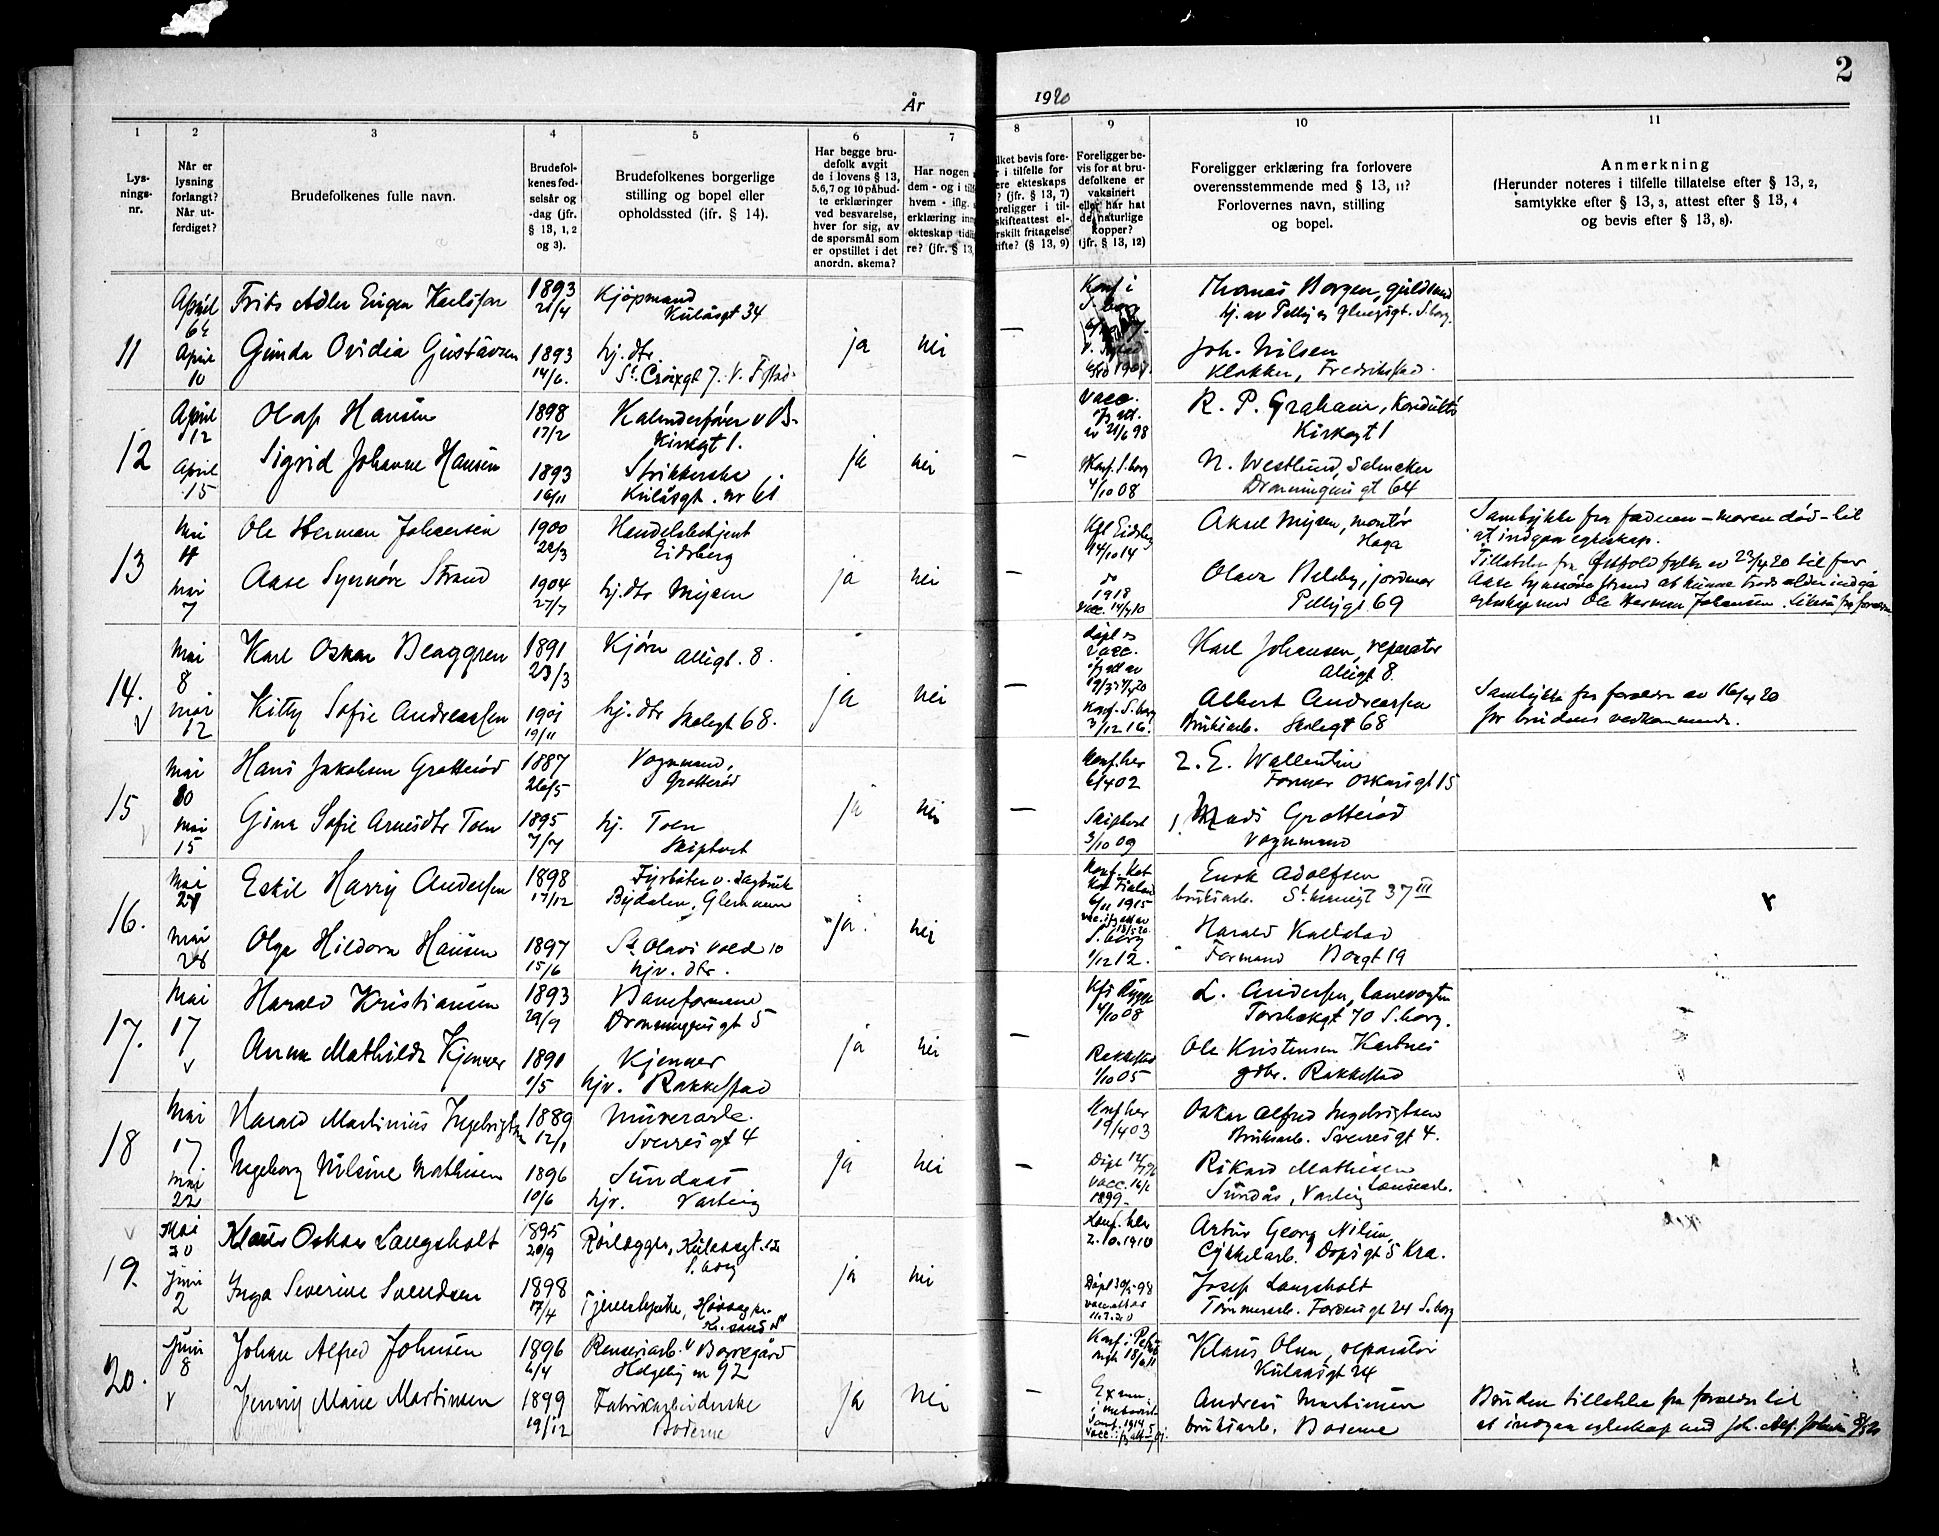 2
År 1920
1
2
3
4
5
6
7
8
9
10
11
Lys-
nings-
nr.
Når er
lysning
forlangt?
Når ut-
ferdiget?
Brudefolkenes fulle navn.
Brudefol-
kenes fød-
selsår og
-dag (jfr.
§ 13, 1, 2
og 3).
Brudefolkenes borgerlige
stilling og bopel eller
opholdssted (ifr. § 14).
Har begge bru-
defolk avgit
de i lovens § 13,
5,6,7 og 10 påbud-
te erklæringer
ved besvarelse,
hver for sig, av
de spørsmål som
er opstillet i det
anordn. skema?
Har nogen
dem - og i
hvem - iflg.
erklæring
ekteskap
re? (jfr. § 13,
bevis fore-
r i tilfelle for
ekteskaps
? (jfr. § 13, 7)
i til-
skifteattest el-
fritagelse
(§ 13, 9)
Foreligger be-
vis for at bru-
defolkene er
vaksinert
eller har hat
de naturlige
kopper?
(jfr. § 13, 12)
Foreligger erklæring fra forlovere
overensstemmende med § 13, 11?
Forlovernes navn, stilling
og bopel.
Anmerkning
(Herunder noteres i tilfelle tillatelse efter § 13, 2,
samtykke efter § 13, 3, attest efter § 13, 4
og bevis efter § 13, 8).
11
April
April
10
Frits Adler Eugen Karlsson
Gunda Ovidia Gustavsen
1893
21/4
1893
14/6.
Kjøpmand
Kulåsgt 34
hj. dtr.
St. Croixgt 7. V. F.stad.
ja
nei
—
Konf i
Thomas Borgen, guldsmed
Joh. Nilsen
Klokker, Fredrikstad.
12
April
12
April
15
Olaf Hansen
Sigrid Johanne Hansen
1898
17/2
1893
16/11
Kalanderfører v B.
Kirkegt 1.
Strikkerske
Kulåsgt. nr 61
ja
nei
—
Vacc.
av 21/6 98
Konf. S.borg
4/10 08
R. P. Graham, Konduktør
Kirkegt 1
N. Westlund, Salmaker
Dronningens gt 64
13
Mai
4
Mai
7
Ole Herman Johansen
Aase Synnøve Strand
1900
22/3
1904
27/7
Handelsbetjent
Eidsberg
hj. dtr Mysen
ja
nei
—
Kfl Eidsbg
4/10 14
do
1918
Vacc. 14/9 10
Aksel Mysen, montør
Haga
Olava Melby, jordmor
Pellygt 69
Samtykke fra faderen – moren død – til
at indgaa egteskap.
Tillatelse fra Østfold fylke av 23/4 20 til for
Aase Synnøve Strand at kunne trods alder indgå
egteskap med Ole Herman Johansen.
14.
V
Mai
8
Mai
12
Karl Oskar Braggren
Kitty Sofie Andreassen
1891
23/3
1901
19/11
Kjører
Alleigt. 8.
hj. dtr Skolegt 68.
ja
nei
—
Konf. S.borg
3/12 16.
Karl Johansen, reparatør
Alleigt 8.
Albert Andreassen
Bruksarb. Skolegt 68
Samtykke fra forældre av 16/4 20
for brudens vedkommende.
15
Mai
10
Mai
15
Hans Jakobsen Grotterød
Gina Sofie Arnesdtr Toen
1887
26/5
1895
7/7
Vognmand,
Grotterød
hj. Toen
Skiptvet
ja
nei
—
Konf. her
6/4 02
Skiptvet
3/10 09
2. E. Wallentin
Former Oskarsgt 15
1. Mads Grotterød
Vognmand
16.
Mai
21
Mai
28
Eskil Harry Andersen
Olga Hildora Hansen
1898
17/12
1897
15/6
Fyrbøter v. Dagbruk
Bydalen, Glemmen
St. Olavs Vold 10
hjv. dtr.
ja
nei
6/11 1915
S. borg
1/12 12.
Enok Adolfsen
bruksarb. St. Mariegt 37 III
Harald Kallstad
Formand Borggt 19
17.
Mai
17
v
Harald Kristiansen
Anna Mathilde Kjenner
1893
29/9
1890
1/5
Baneformand
Dronningens gt 5
Kjenner
hjv. Rakkestad
ja
nei
—
Kfi Rygge
4/10 08
Rakkestad
1/10 05
L. Andersen, banevogter
Torsbekkgt 70 S.borg.
Ole Kristensen Kartnes
gdbr. Rakkestad
18
Mai
17
Mai
22
Harald Martinius Ingebrigtsen
Ingeborg Nilsine Mathisen
1889
12/1
1896
10/6
Murerarb.
Sverresgt 4
Sundaas
hjv. Varteig
ja
nei
—
Konf her
19/4 03
Døpt 12/7 96
vacc. 16/6
1899.
Oskar Alfred Ingebrigtsen
Bruksarb. Sverresgt 4.
Rikard Mathisen
Sundås, Varteig
19.
v
Mai
20
Juni
2
Klaus Oskar Langsholt
Inga Severine Svendsen
1895
20/9
1898
17/4
Rørlægger, Kulaasgt. 12
S. borg
Tjenestepike, Høvåg pr.
Kr.sand S
ja
nei
Konf. her
2.10.1910
Døpt 30/5-98
Artur Georg Nilsen,
Cykkelarb. Dopsgt 5 Kra.
Josef Langsholt
Tømmerarb. Fordensgt 24 S.borg
20.
Juni
8
v
Johan Alfred Johnsen
Jenny Marie Martinsen
1896
6/4
1899
19/12
Renseriarb. v Borregård
Hølgeby nr 92
Fabrikarbeiderske
Boderne
ja
nei
—
Klaus Olsen, reparatør
Kulåsgt 24
Andreas Martinsen
bruksarb. Boderne
Bruden tillatelse fra forældre til
at indgaa egteskap med Joh. Alf. Johnsen